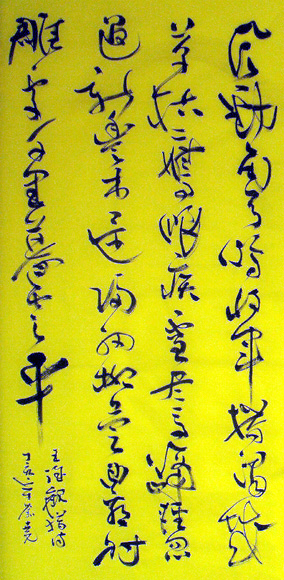 風勁角弓鳴將軍獵渭城
草枯鷹眼疾雪尽馬蹄輕忽
過新豐市還歸細柳營回看射
雕處千里暮雲平
王維觀獵詩
丁亥年